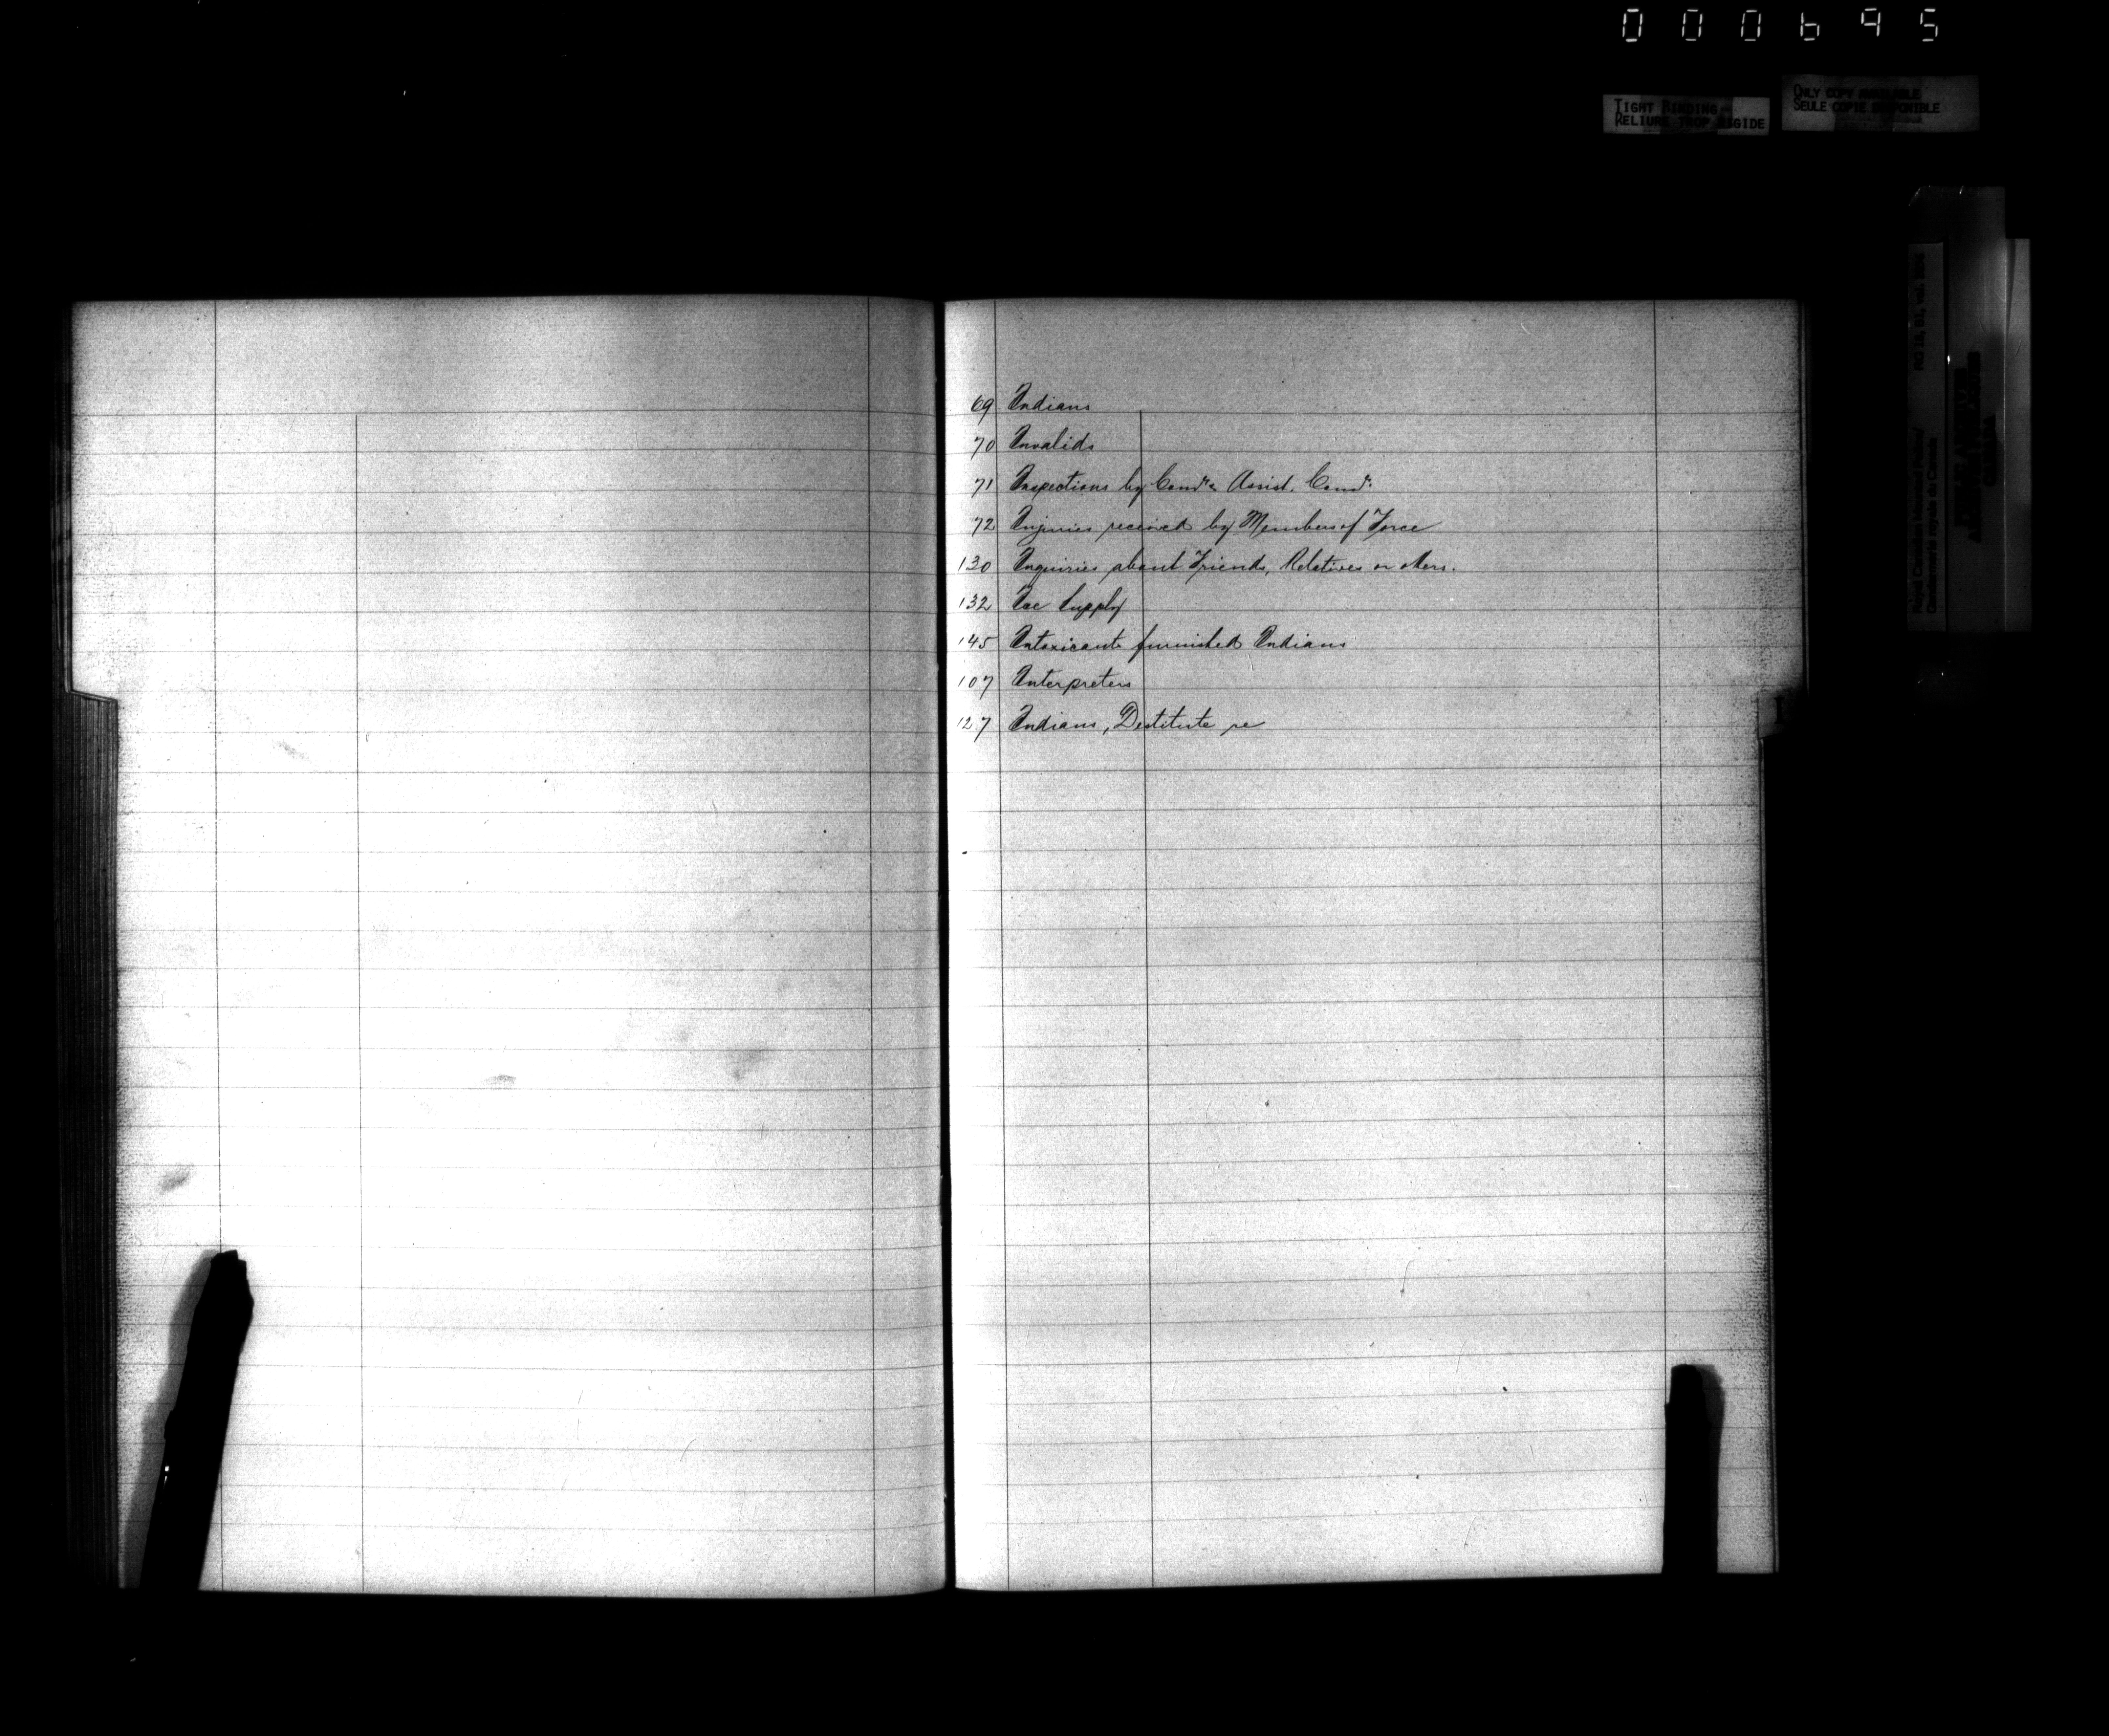 000695
TIGHT BINDING
RELIURE TROP RIGIDE
ONLY COPY AVAILABLE
SEULE COPIE DISPONIBLE
69 Indians
70 Invalids
71 Inspections by Comr. & Assist. Comr.
72 Injuries received by Members of Force
130 Inquiries about Friends, Relatives or others.
132 Ice Supply
145 Intoxicants furnished Indians
107 Interpreters
127 Indians, Destitute re
I
Royal Canadian Mounted Police/
Gendarmerie royale du Canada